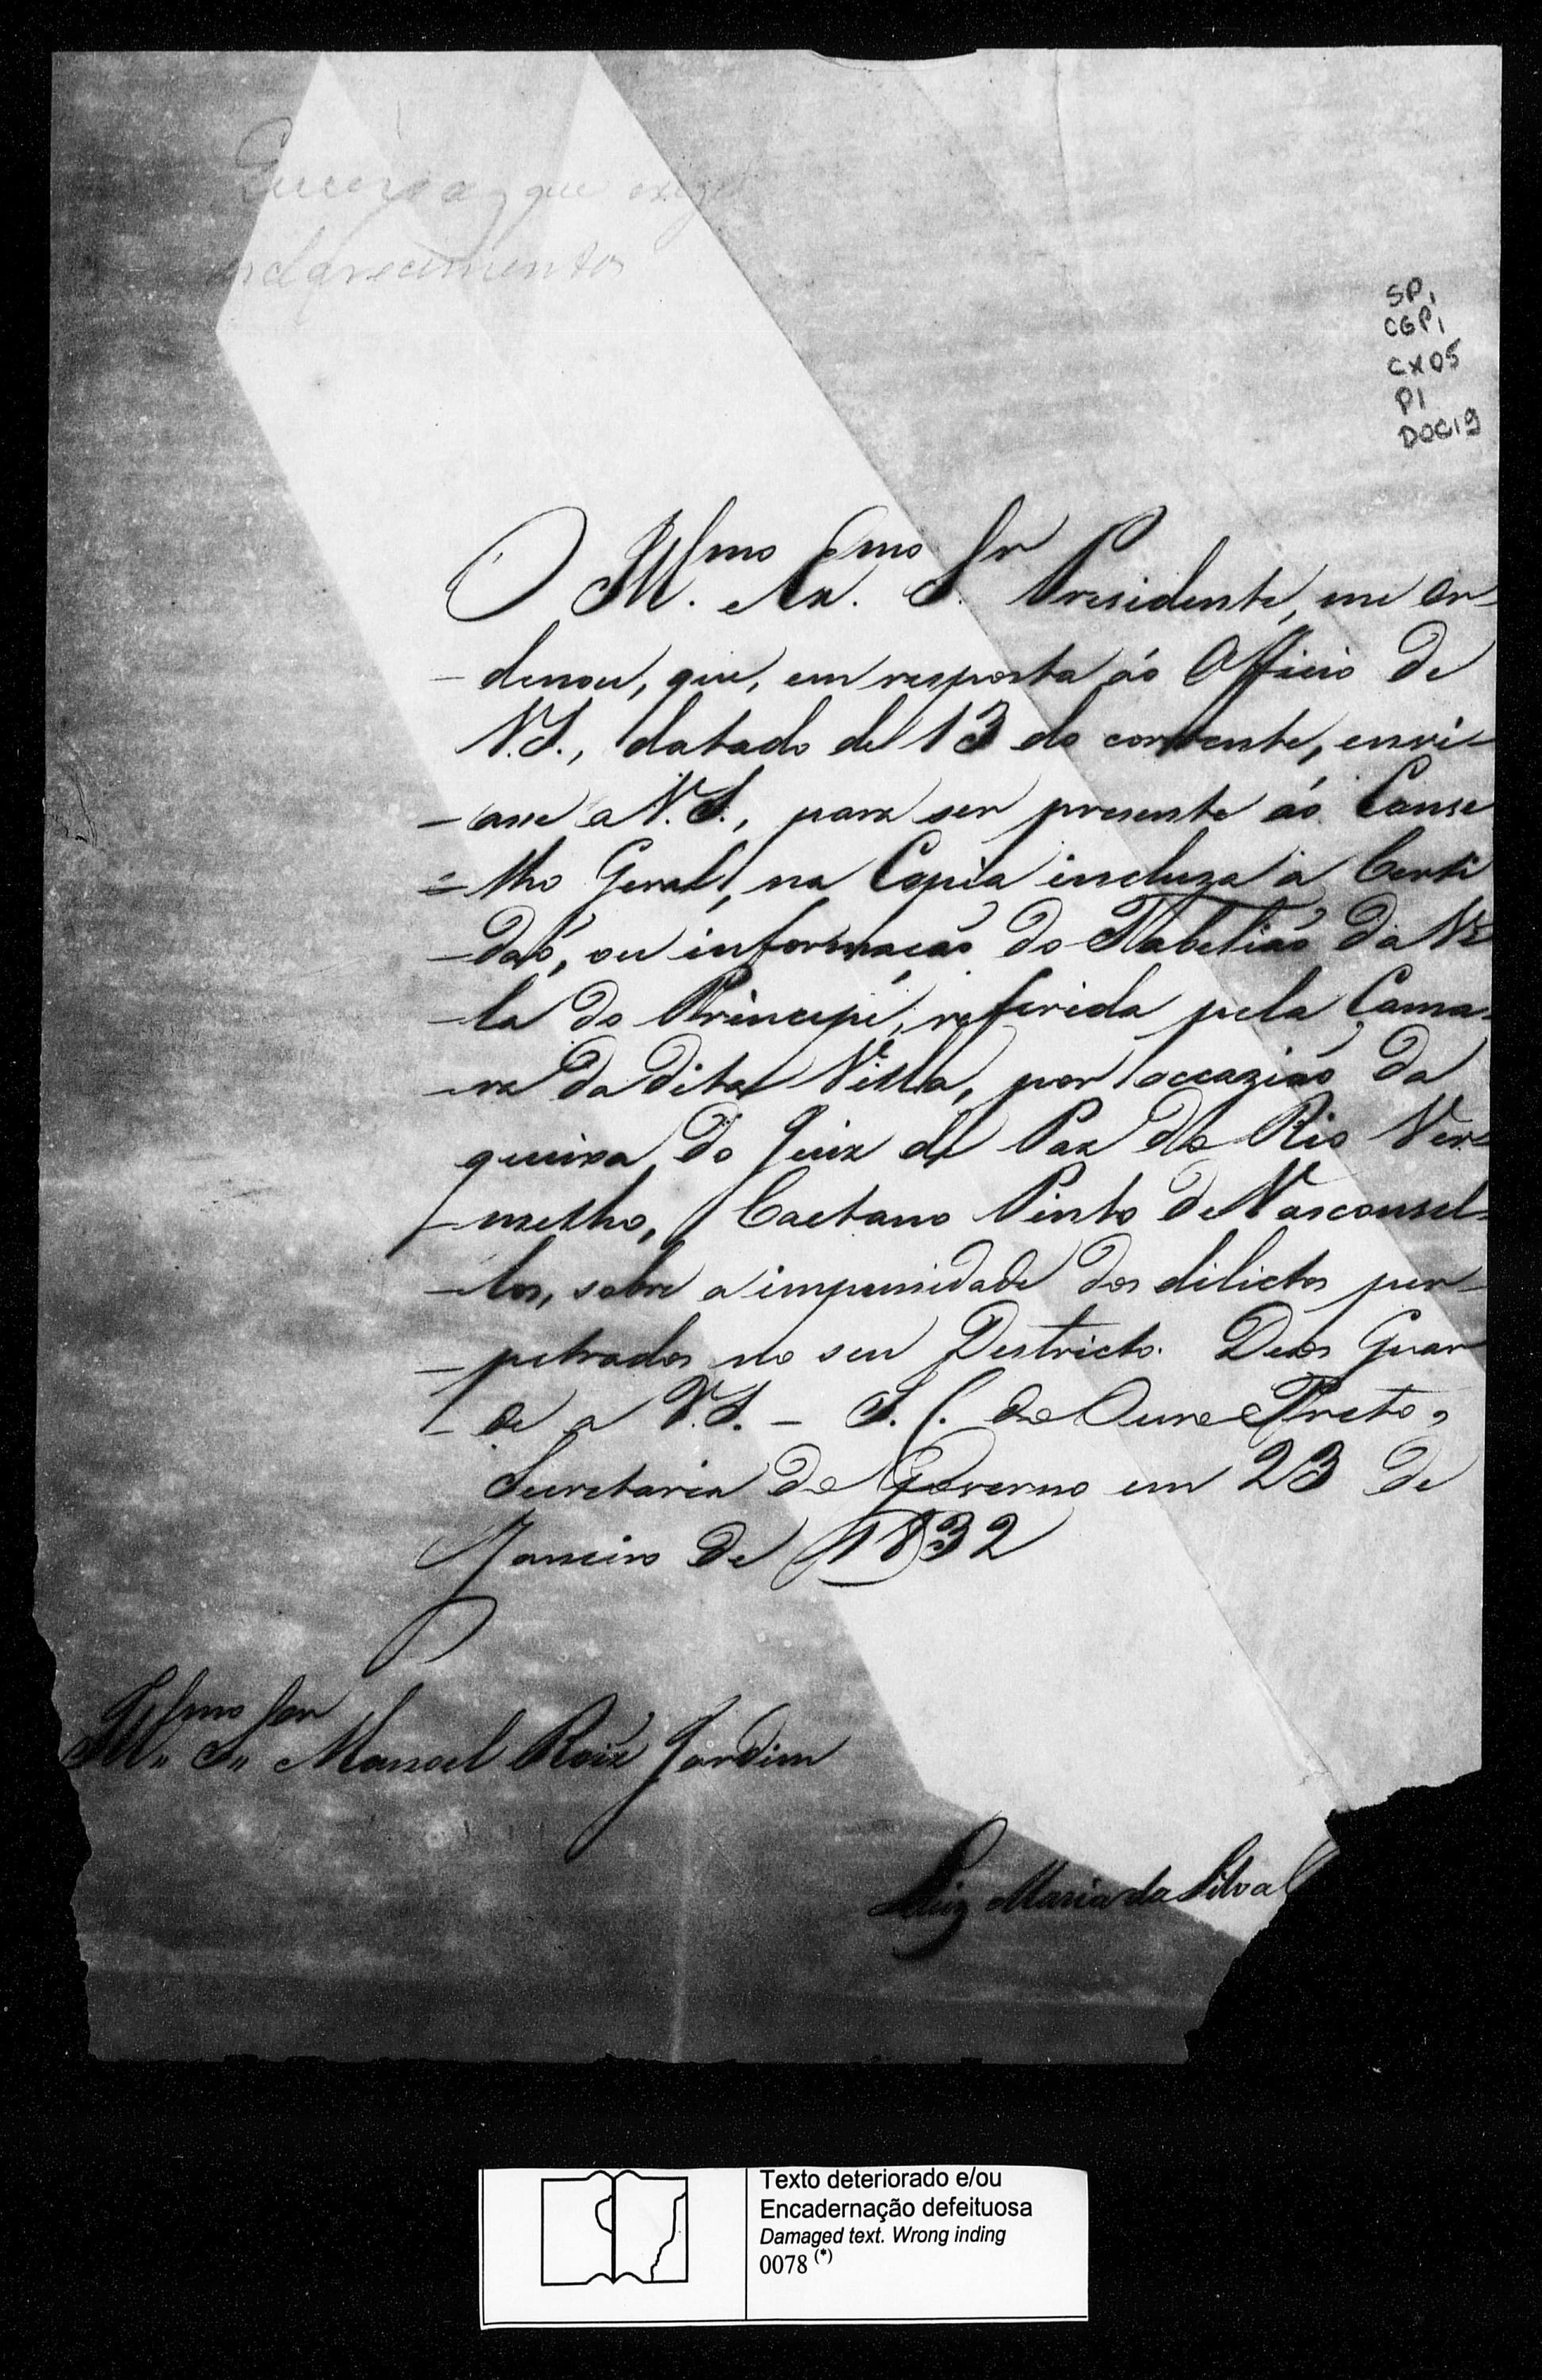 que exige
esclarecimentos
SP,
CGP,
CX05
P1
DOC19
O Illmo. Exmo. Snr. Presidente, me or-
-denou, que, em resposta áo Officio de
V.S., datado de 13 do corrente, envi-
-asse a V.S., para ser presente áo Conse
-lho Geral, na Copia incluza a Certi
-daõ, ou informaçaõ do Tabeliaõ da Vi-
-la do Principe, referida pela Cama-
-ra da dita Villa, por occaziaõ da
queixa do Juiz de Paz do Rio Ver-
-melho, Caetano Pinto de Vasconsel-
-los, sobre a impunidade dos dilictos per-
-petrados no seu Destricto. Deos Guar
-de a V.S. - I. C. do Ouro Preto,
Secretaria do Governo em 23 de
Janeiro de 1832
Illmo Snr Manoel Roiz Jardim
Luiz Maria da Silva
Texto deteriorado e/ou
Encadernação defeituosa
Damaged text. Wrong inding
0078 (*)